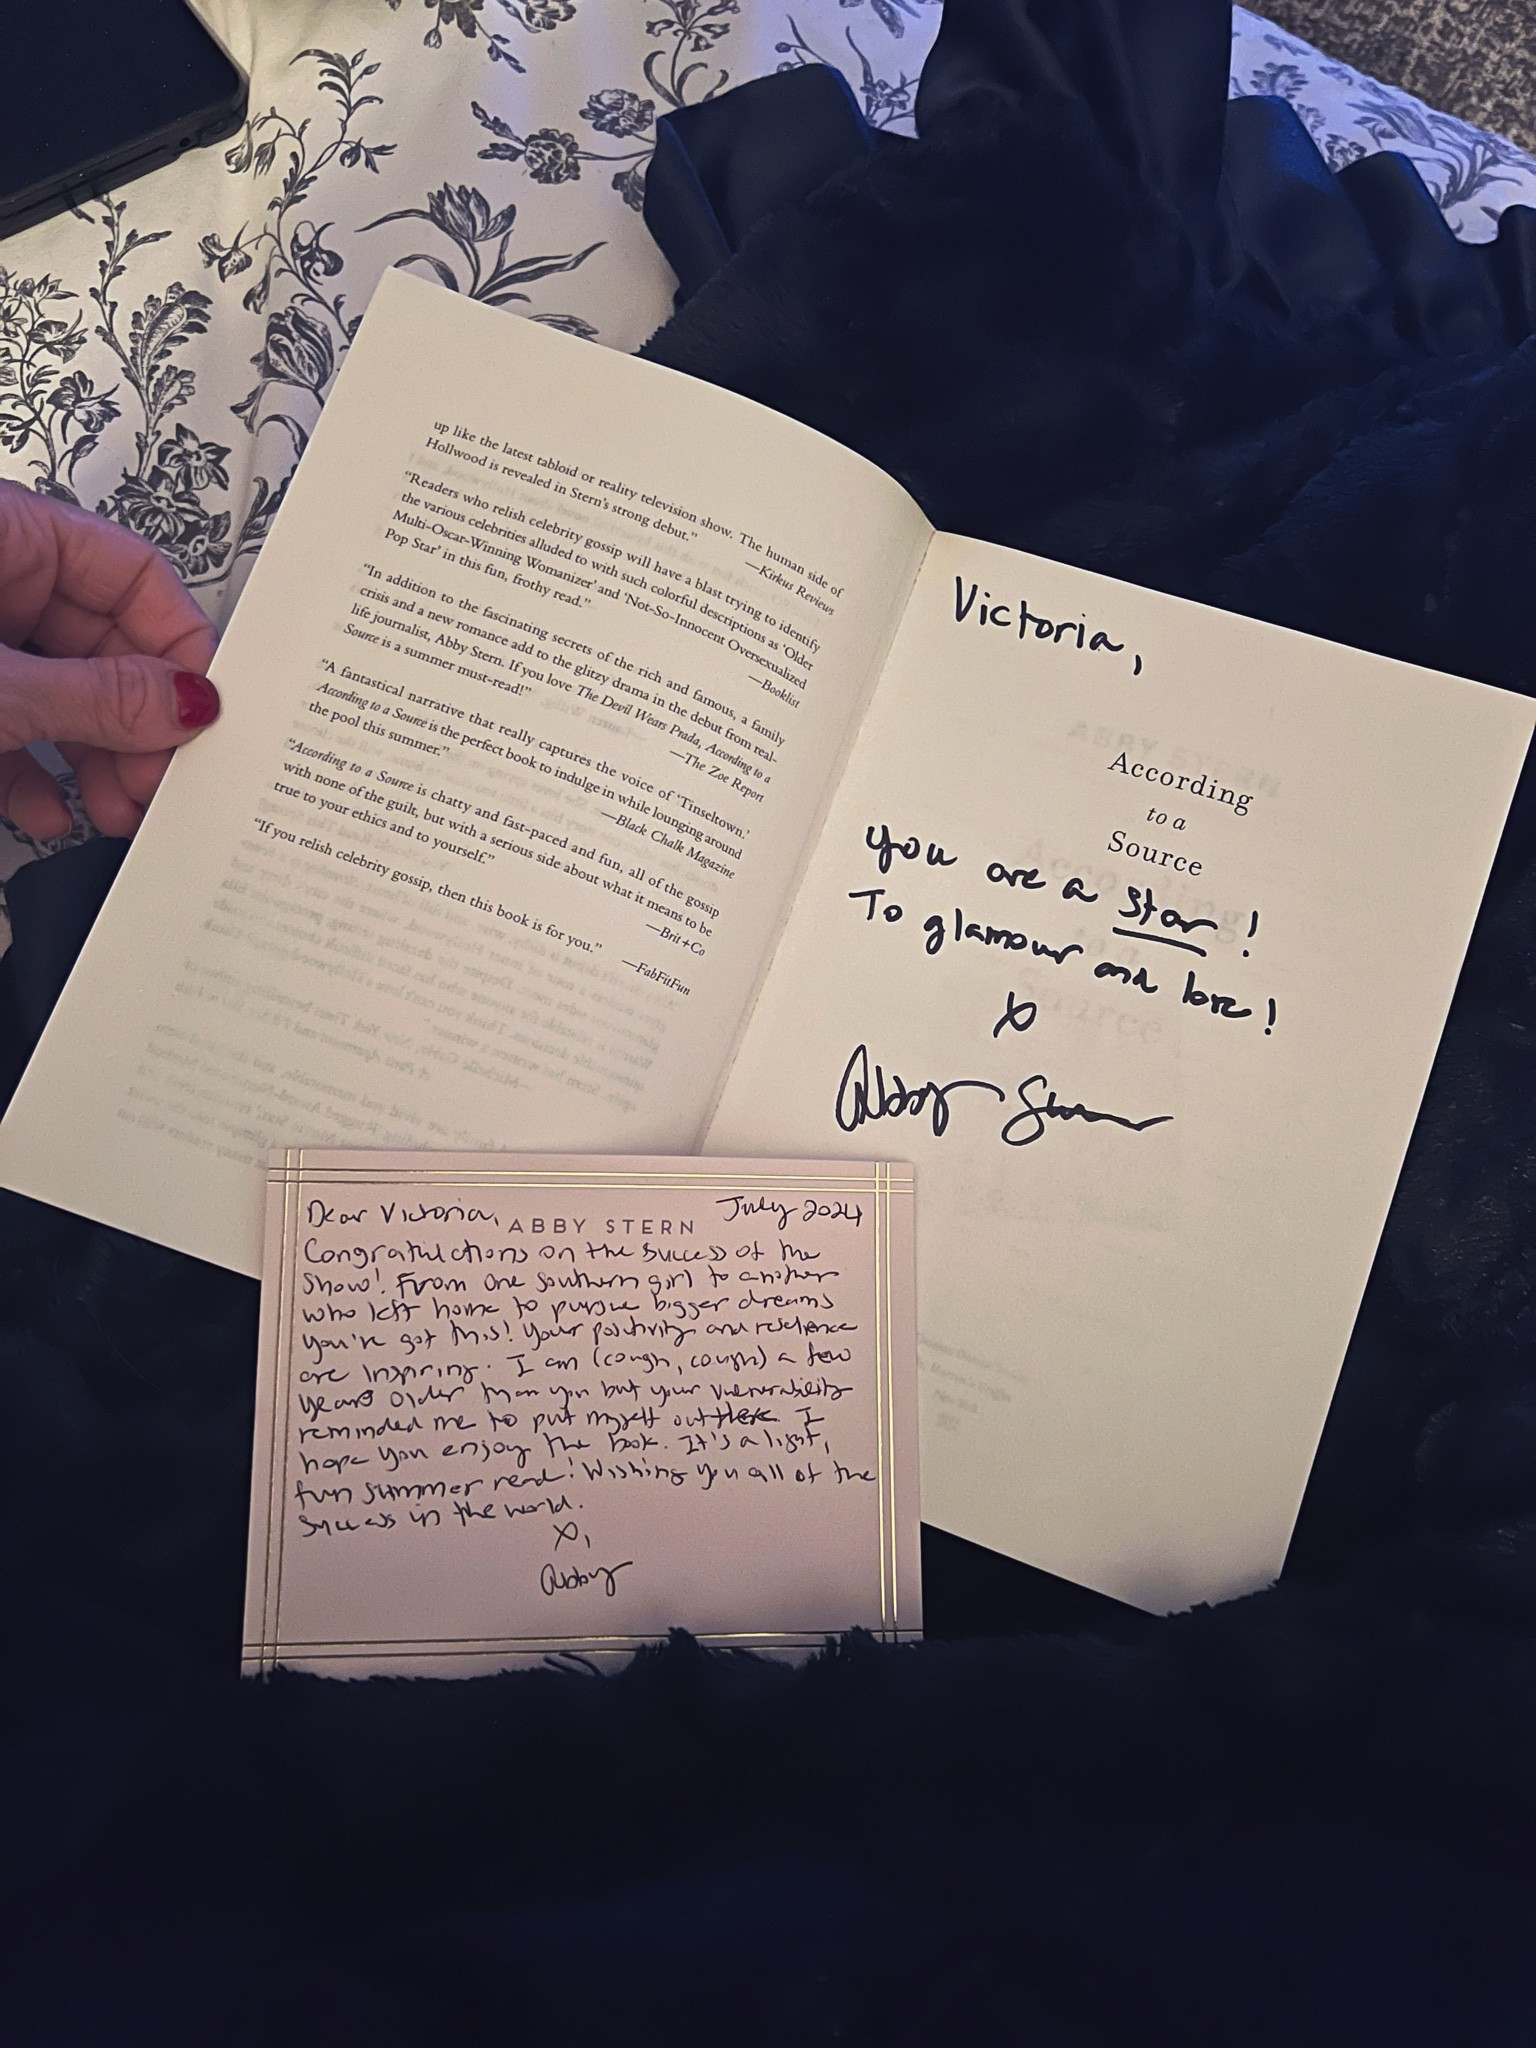 up like the latest tabloid or reality television show. The human side of
Hollwood is revealed in Stern's strong debut."
—Kirkus Reviews
"Readers who relish celebrity gossip will have a blast trying to identify
the various celebrities alluded to with such colorful descriptions as 'Older
Multi-Oscar-Winning Womanizer' and 'Not-So-Innocent Oversexualized
Pop Star' in this fun, frothy read."
—Booklist
"In addition to the fascinating secrets of the rich and famous, a family
crisis and a new romance add to the glitzy drama in the debut from real-
life journalist, Abby Stern. If you love The Devil Wears Prada, According to a
Source is a summer must-read!"
—The Zoe Report
"A fantastical narrative that really captures the voice of 'Tinseltown.'
According to a Source is the perfect book to indulge in while lounging around
the pool this summer."
—Black Chalk Magazine
"According to a Source is chatty and fast-paced and fun, all of the gossip
with none of the guilt, but with a serious side about what it means to be
true to your ethics and to yourself."
—Brit+Co
"If you relish celebrity gossip, then this book is for you."
—FabFitFun
Victoria,
According
to a
Source
You are a star!
To glamour and love!
X
Abby Stern
Dear Victoria,
ABBY STERN
July 2024
Congratulations on the success of the
show! From one southern girl to another
who left home to pursue bigger dreams
you've got this! Your positivity and resilience
are inspiring. I am (cough, cough) a few
years older than you but your vulnerability
reminded me to put myself out there. I
hope you enjoy the book. It's a light,
fun summer read! Wishing you all of the
success in the world.
X,
Abby